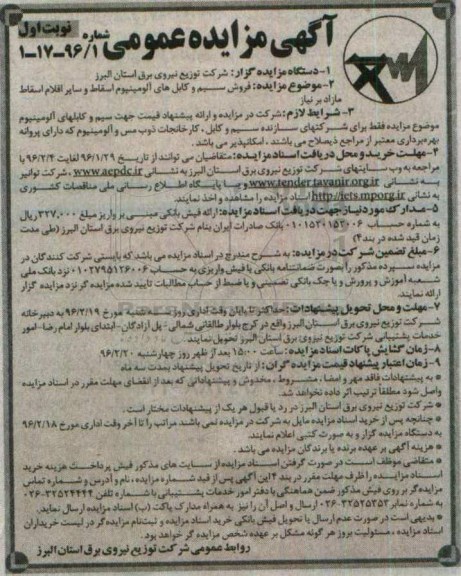 آگهی مزایده عمومی شماره ۹۶/۱-۱۷-۱
نوبت اول
۱-دستگاه مزایده گزار: شرکت توزیع نیروی برق استان البرز
۲-موضوع مزایده: فروش سیم و کابل های آلومینیوم اسقاط و سایر اقلام اسقاط
مازاد بر نیاز
۳- شرایط لازم: شرکت در مزایده و ارائه پیشنهاد قیمت جهت سیم و کابلهای آلومینیوم
موضوع مزایده فقط برای شرکتهای سازنده سیم و کابل ، کارخانجات ذوب مس و آلومینیوم که دارای پروانه
بهره‌برداری معتبر از مراجع ذیصلاح می باشند ، امکانپذیر می باشد.
۴-مهلت خرید و محل دریافت اسناد مزایده: متقاضیان می توانند از تاریخ ۹۶/۱/۲۹ لغایت ۹۶/۲/۴ با
مراجعه به وب سایتهای شرکت توزیع نیروی برق استان البرز به نشانی www.aepdc.ir ، شرکت توانیر
به نشانی www.tender.tavanir.org.ir و یا پایگاه اطلاع رسانی ملی مناقصات کشوری
به نشانی http://iets.mporg.ir اسناد مزایده را مشاهده و اخذ نمایند.
۵-مدارک مورد نیاز جهت دریافت اسناد مزایده: ارائه فیش بانکی مبنی بر واریز مبلغ ۳۲۷،۰۰۰ ریال
به شماره حساب ۰۱۰۱۵۲۰۱۵۲۰۰۶ بانک صادرات ایران بنام شرکت توزیع نیروی برق استان البرز (طی مدت
زمان قید شده در بند ۴)
۶-مبلغ تضمین شرکت در مزایده: به شرح مندرج در اسناد مزایده می باشد که بایستی شرکت کنندگان در
مزایده سپرده مذکور را بصورت ضمانتنامه بانکی یا فیش واریزی به حساب ۰۱۰۲۷۹۵۱۲۶۰۰۶ نزد بانک ملی
شعبه آموزش و پرورش و یا چک بانکی تضمینی و یا ضبط از حساب مطالبات تایید شده مزایده گر نزد مزایده گزار
ارائه نمایند.
۷-مهلت و محل تحویل پیشنهادات: حداکثر تا پایان وقت اداری روز سه شنبه مورخ ۹۶/۲/۱۹ به دبیرخانه
شرکت توزیع نیروی برق استان البرز واقع در کرج بلوار طالقانی شمالی - پل آزادگان - ابتدای بلوار امام رضا - امور
خدمات پشتیبانی شرکت توزیع نیروی برق استان البرز تحویل نمایند.
۸-زمان گشایش پاکات اسناد مزایده: ساعت ۱۵:۰۰ بعد از ظهر روز چهارشنبه ۹۶/۲/۲۰
۹-زمان اعتبار پیشنهاد قیمت مزایده گران: از تاریخ تحویل پیشنهاد بمدت سه ماه
* به پیشنهادات فاقد مهر و امضاء ، مشروط ، مخدوش و پیشنهاداتی که بعد از انقضای مهلت مقرر در اسناد مزایده
واصل شود مطلقاً ترتیب اثر داده نخواهد شد.
* شرکت توزیع نیروی برق استان البرز در رد یا قبول هر یک از پیشنهادات مختار است .
* چنانچه پس از خرید اسناد مزایده مایل به شرکت در مزایده نمی باشد مراتب را تا آخر وقت اداری مورخ ۹۶/۲/۱۸
به دستگاه مزایده گزار و به صورت کتبی اعلام نمایند.
* هزینه آگهی بر عهده برنده یا برندگان مزایده می باشد.
* متقاضی موظف است در صورت گرفتن اسناد مزایده از سایت های مذکور فیش پرداخت هزینه خرید
اسناد مزایده را ظرف مهلت مقرر در بند ۴ این آگهی پس از قید شماره مزایده ، نام و آدرس و شماره تماس
مزایده گر بر روی فیش مذکور ضمن هماهنگی با دفتر امور خدمات پشتیبانی با شماره تلفن ۳۲۵۲۴۴۴۴-۰۲۶
به شماره نمابر ۳۲۵۲۵۳۵۳-۰۲۶ ارسال و اصل آن را نیز به همراه مدارک پاکت (ب) اسناد مزایده ارسال نماید.
* بدیهی است در صورت عدم ارسال یا تحویل فیش بانکی خرید اسناد مزایده و ثبت‌نام مزایده گر در لیست خریداران
اسناد مزایده ، مسئولیت بروز هر گونه مشکل بر عهده شخص مزایده گر خواهد بود.
روابط عمومی شرکت توزیع نیروی برق استان البرز